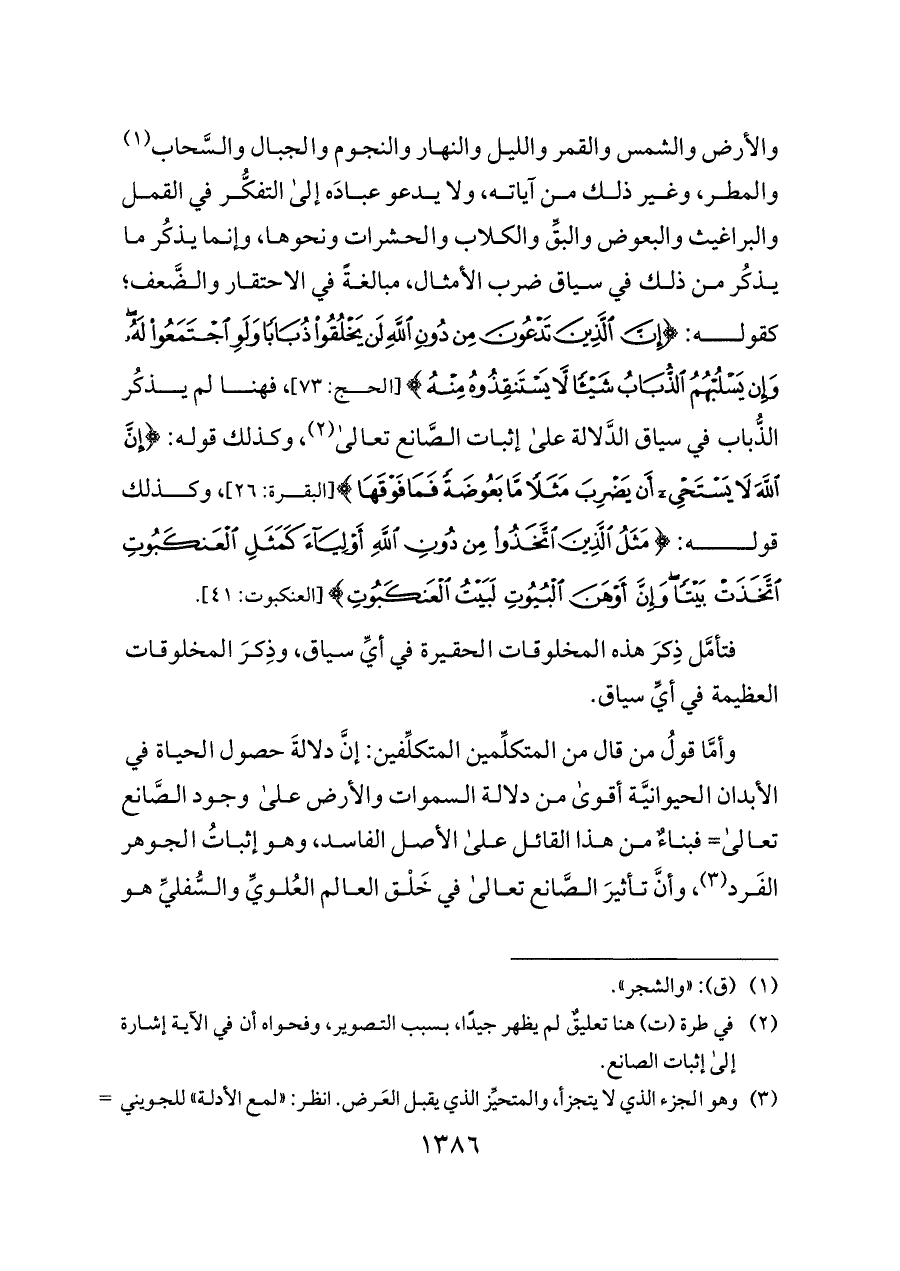 والأرض والشمس والقمر والليل والنهار والنجوم والجبال والسَّحاب(١)
والمطر، وغير ذلك من آياته، ولا يدعو عبادَه إلىٰ التفكُّر في القمل
والبراغيث والبعوض والبقِّ والكلاب والحشرات ونحوها، وإنما يذكُر ما
يذكُر من ذلك في سياق ضرب الأمثال، مبالغةً في الاحتقار والضَّعف؛
كقوله: ﴿إِنَّ ٱلَّذِينَ تَدْعُونَ مِن دُونِ ٱللَّهِ لَن يَخْلُقُوا۟ ذُبَابًا وَلَوِ ٱجْتَمَعُوا۟ لَهُۥ ۖ
وَإِن يَسْلُبْهُمُ ٱلذُّبَابُ شَيْـًٔا لَّا يَسْتَنقِذُوهُ مِنْهُ﴾ [الحج: ٧٣]، فهنا لم يذكُر
الذُّباب في سياق الدَّلالة علىٰ إثبات الصَّانع تعالىٰ(٢)، وكذلك قوله: ﴿إِنَّ
ٱللَّهَ لَا يَسْتَحْىِۦٓ أَن يَضْرِبَ مَثَلًا مَّا بَعُوضَةً فَمَا فَوْقَهَا﴾ [البقرة: ٢٦]، وكذلك
قوله: ﴿مَثَلُ ٱلَّذِينَ ٱتَّخَذُوا۟ مِن دُونِ ٱللَّهِ أَوْلِيَآءَ كَمَثَلِ ٱلْعَنكَبُوتِ
ٱتَّخَذَتْ بَيْتًا ۖ وَإِنَّ أَوْهَنَ ٱلْبُيُوتِ لَبَيْتُ ٱلْعَنكَبُوتِ﴾ [العنكبوت: ٤١].
فتأمَّل ذِكرَ هذه المخلوقات الحقيرة في أيِّ سياق، وذِكرَ المخلوقات
العظيمة في أيِّ سياق.
وأمَّا قولُ من قال من المتكلِّمين المتكلِّفين: إنَّ دلالةَ حصول الحياة في
الأبدان الحيوانيَّة أقوىٰ من دلالة السموات والأرض علىٰ وجود الصَّانع
تعالىٰ= فبناءٌ من هذا القائل علىٰ الأصل الفاسد، وهو إثباتُ الجوهر
الفَرد(٣)، وأنَّ تأثيرَ الصَّانع تعالىٰ في خَلْق العالم العُلويِّ والسُّفليِّ هو
(١) (ق): «والشجر».
(٢) في طرة (ت) هنا تعليقٌ لم يظهر جيدًا، بسبب التصوير، وفحواه أن في الآية إشارة
إلىٰ إثبات الصانع.
(٣) وهو الجزء الذي لا يتجزأ، والمتحيِّز الذي يقبل العَرض. انظر: «لمع الأدلة» للجويني =
١٣٨٦